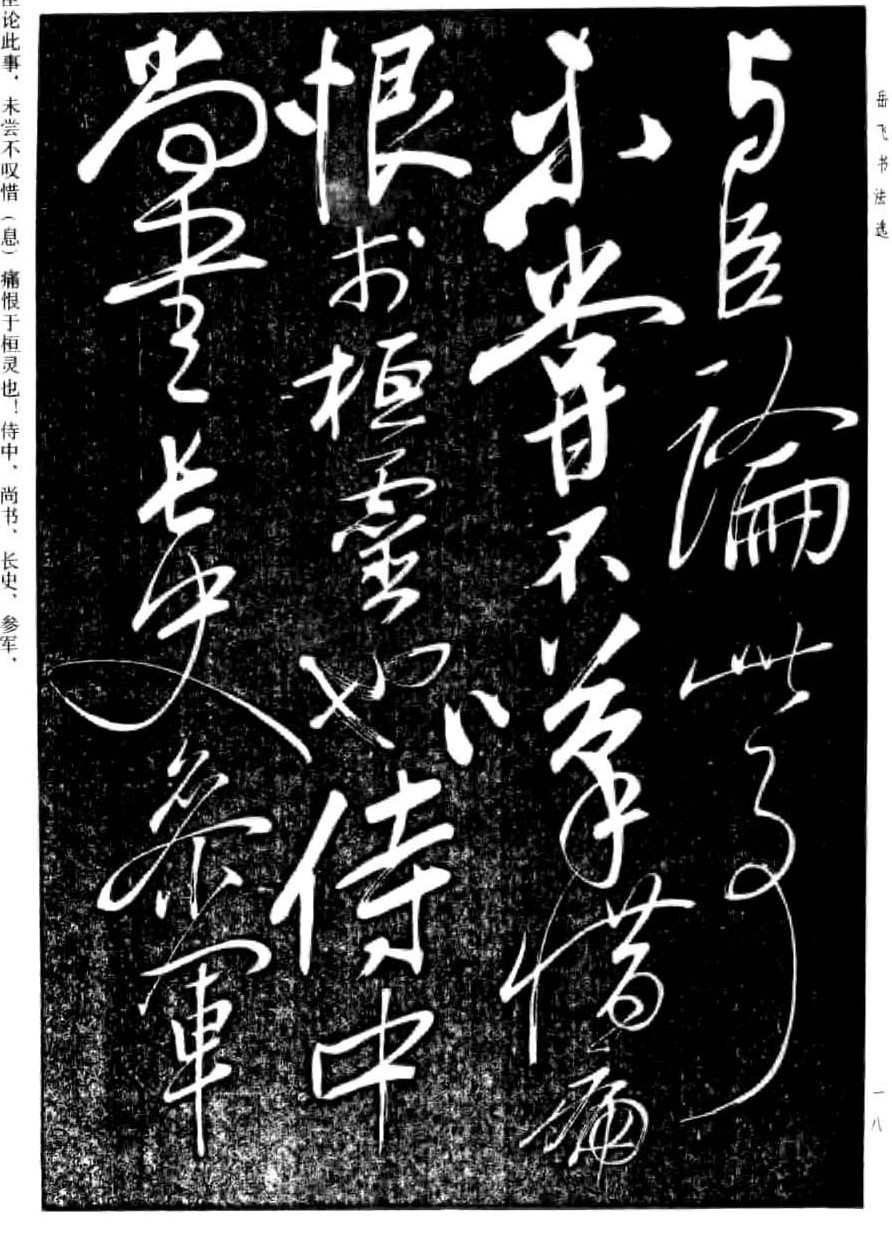 岳飞书法选
一八
与臣論此事
未嘗不嘆惜痛
恨於桓靈也侍中
尚書長史參軍
论此事，未尝不叹惜（息）痛恨于桓灵也！侍中、尚书、长史、参军、